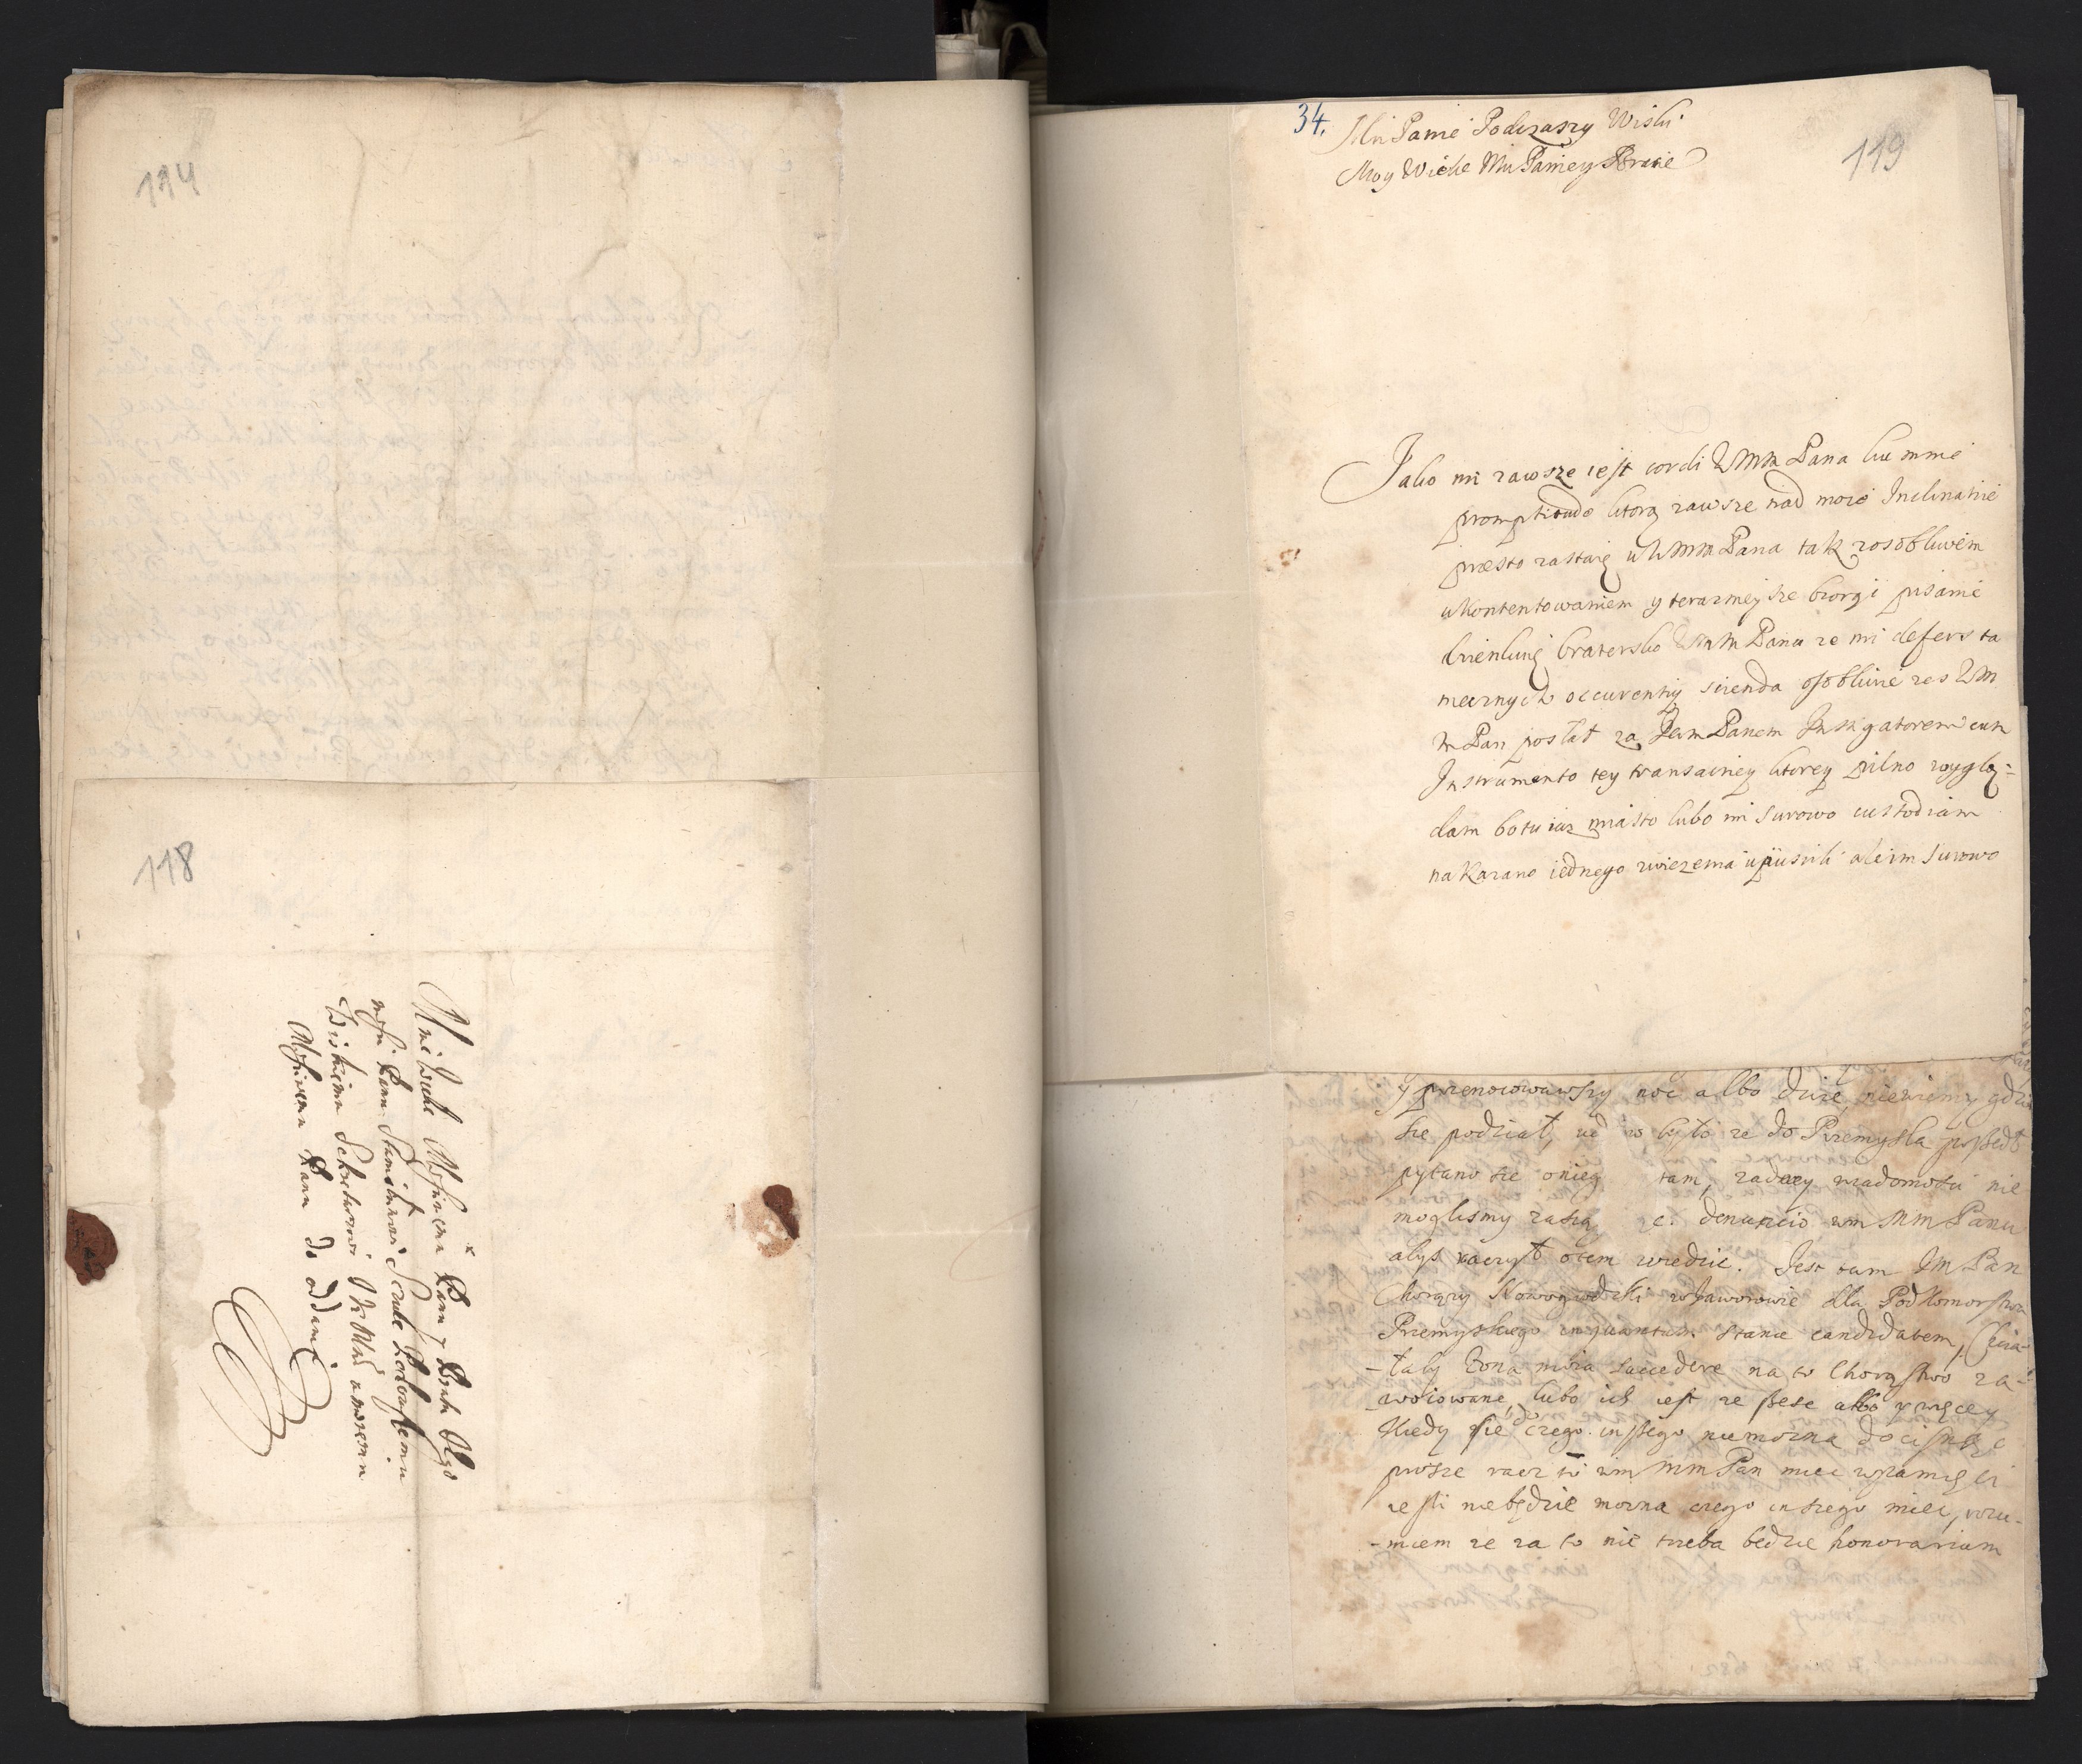 114
118
Mnie Wielce Mściwemu Panu y Bratu Jego
mści Panu Stanisławowi Podczaszemu
Wiskiemu Sekretarzowi J K Mci memu
Mściwemu Panu do oddania
34.
119
Mci Panie Podczaszy Wiski
Moy Wielce Mci Panie y Bracie
Jako mi zawsze iest cordi WMM Pana ku mnie
promptitudo ktorą zawsze nad moie Inclinatie
præsto zastaię u WMM Pana tak zosobliwem
ukontentowaniem y teraznieysze biorę pisanie
braterskie WMM Pana ze mi defers ta
mecznych occurentiy scienda osobliwie zes WM
M Pan posłał za Jem Panem Instigatorem cum
Instrumento tey transactiey ktorey pilno wyglą-
dam bo tu iuz miasto lubo mi surowo custodiam
nakazano iednego więzenia upuscili ale im surowo
y przenocowawszy noc albo dwie, niewiemy gdzie
sie podział, było ze do Przemysla poszedł
pytano sie o nieg tam, zadney wiadomosci nie
moglismy denuncio wm MM Panu
abys raczył otem wiedzic. Jest tam JM Pan
Chorązy Nowogrodzki w Jaworowie dla Podkomorstwa
Przemyskiego inquantum stanie candidatem, Chcia-
-łaby Zona moia succedere na to Chorąstwo za-
woiowane, lubo ich iest ze szesc albo y więcey
Kiedy sie czego inszego niemozna docisnąc
prosze racz to wm MM Pan miec w pamięci
iesli niebędzie mozna czego inszego miec, rozu-
-miem ze za to nie trzeba będzie honorarium